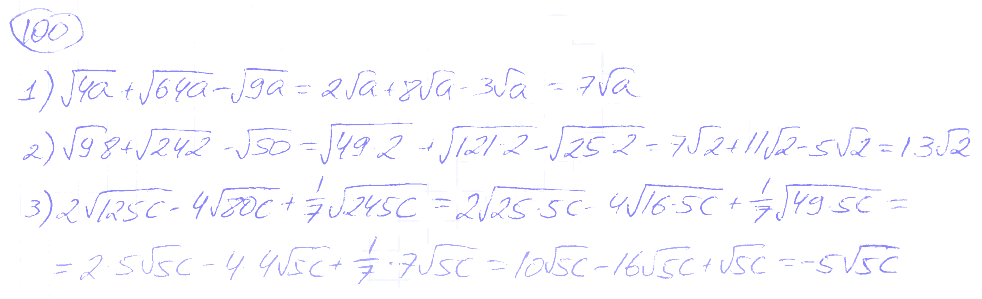 100
1) √4a + √64a - √9a = 2√a + 8√a - 3√a = 7√a
2) √98 + √242 - √50 = √49·2 + √121·2 - √25·2 = 7√2 + 11√2 - 5√2 = 13√2
3) 2√125c - 4√80c + 1/7√245c = 2√25·5c - 4√16·5c + 1/7√49·5c =
= 2·5√5c - 4·4√5c + 1/7·7√5c = 10√5c - 16√5c + √5c = -5√5c